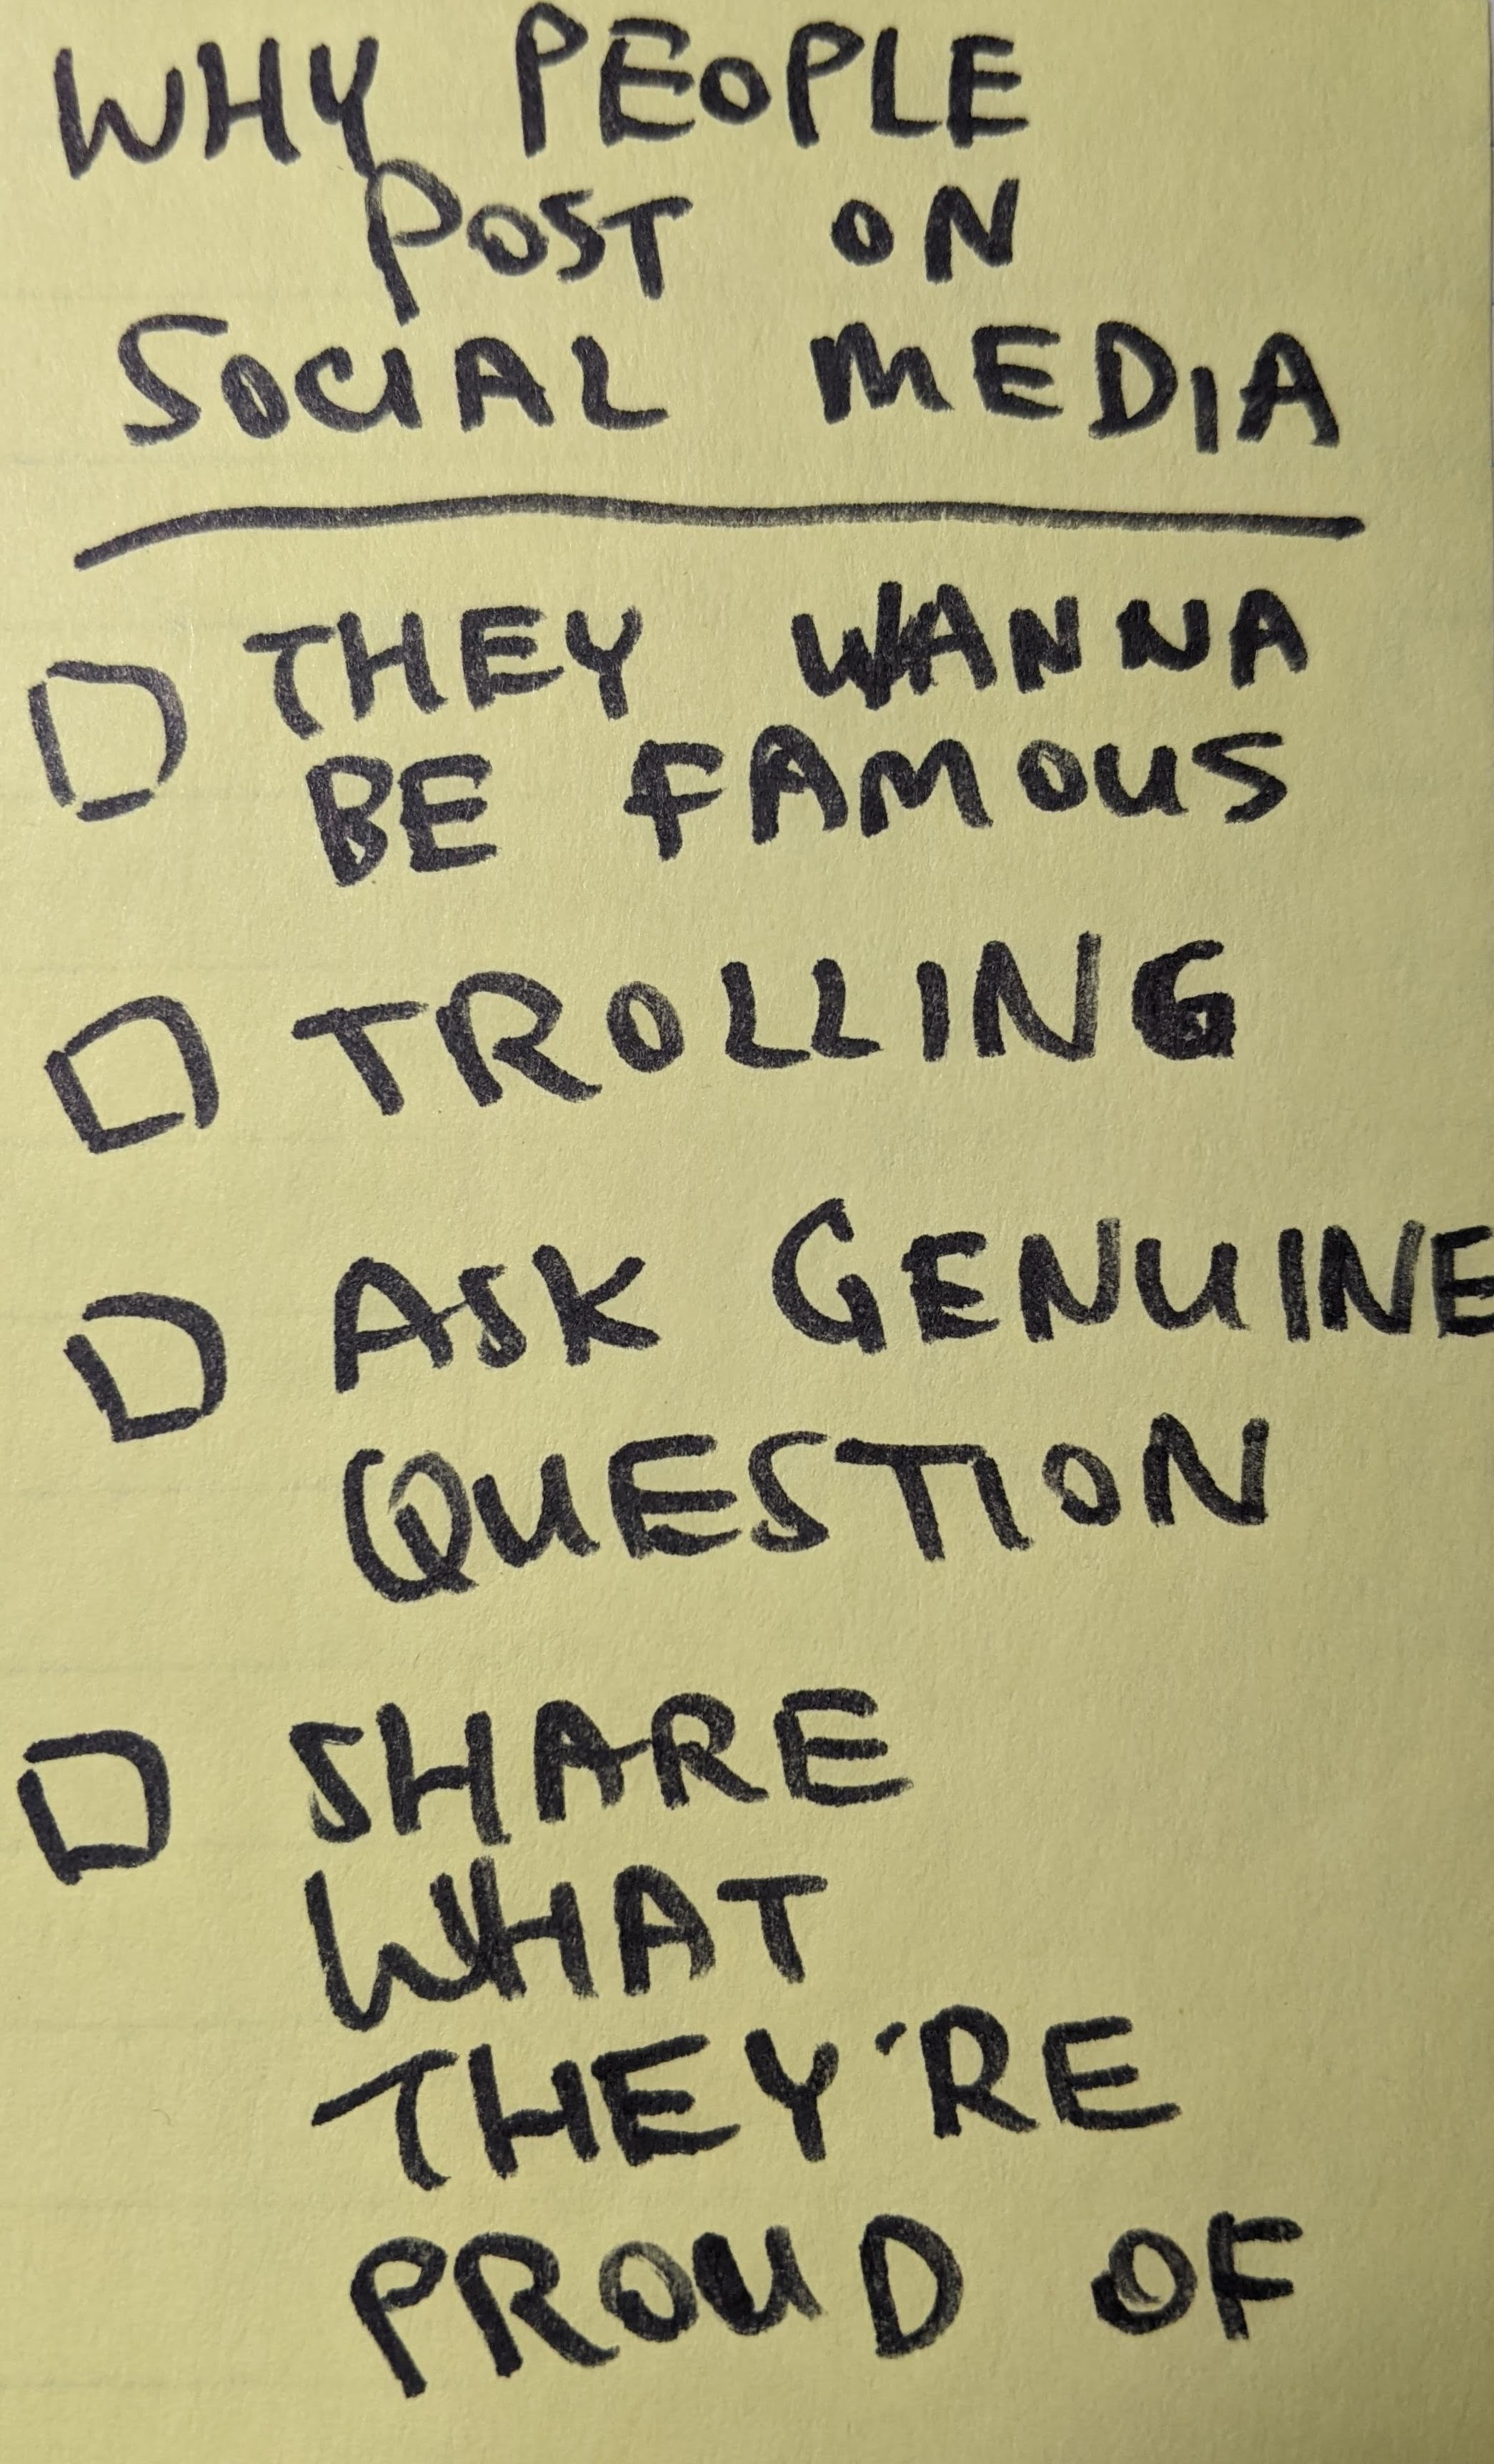 WHY PEOPLE
POST ON
SOCIAL MEDIA
THEY WANNA
BE FAMOUS
TROLLING
ASK GENUINE
QUESTION
SHARE
WHAT
THEY'RE
PROUD OF